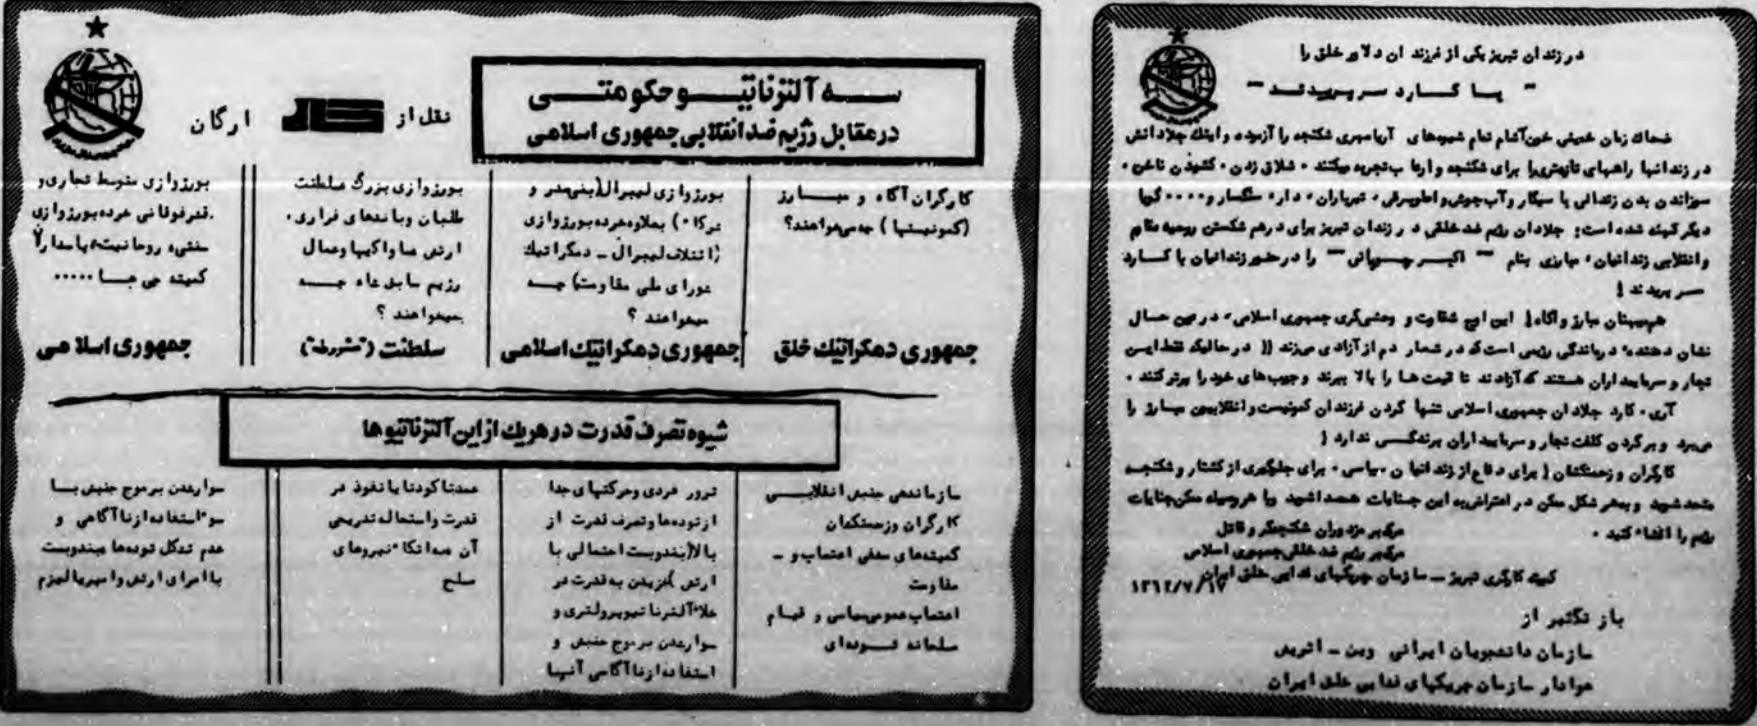 در زندان تبریز یکی از فرزندان دلاور خلق را
با کارد سر بریدند
ضحاک زمان خمینی خون‌آشام تمام شیوه‌های آریامهری شکنجه را آزموده و اینک جلادانش
در زندانها راههای تازه‌تری را برای شکنجه و ارعاب تجربه میکنند ، شلاق زدن ، کشیدن ناخن ،
سوزاندن بدن زندانی با سیگار و آب جوش و اطوبرقی ، تیرباران ، دار ، سنگسار و ۰۰۰۰ گویا
دیگر کهنه شده است ; جلادان رژیم ضد خلقی در زندان تبریز برای درهم شکستن روحیه مقاوم
و انقلابی زندانیان ، مبارزی بنام " اکبر چوپانی " را در حضور زندانیان با کارد
سر بریدند !
هم‌میهنان مبارز و آگاه ! این اوج شقاوت و وحشی‌گری جمهوری اسلامی ، در عین حال
نشان دهنده درماندگی رژیمی است که در شعار دم از آزادی میزند (( در حالیکه فقط این
تجار و سرمایه‌داران هستند که آزادند تا قیمت‌ها را بالا ببرند و جیب‌های خود را پرتر کنند .
آری ، کارد جلادان جمهوری اسلامی تنها گردن فرزندان کمونیست و انقلابیون مبارز را
می‌برد و بر گردن کلفت تجار و سرمایه‌داران برندگی ندارد !
کارگران و زحمتکشان ! برای دفاع از زندانیان سیاسی ، برای جلوگیری از کشتار و شکنجه
متحد شوید و بهر شکل ممکن در اعتراض به این جنایات همصدا شوید و با هر وسیله ممکن جنایات
رژیم را افشاء کنید .
مرگ بر مزدوران شکنجه‌گر و قاتل
مرگ بر رژیم ضد خلقی جمهوری اسلامی
کمیته کارگری تبریز ــ سازمان چریکهای فدایی خلق ایران
۱۳۶۲/۷/۱۷
باز تکثیر از
سازمان دانشجویان ایرانی وین ــ اتریش
هوادار سازمان چریکهای فدایی خلق ایران
سه آلترناتیو حکومتی
در مقابل رژیم ضد انقلابی جمهوری اسلامی
نقل از کار ارگان
کارگران آگاه و مبارز
(کمونیستها ) چه میخواهند؟
جمهوری دمکراتیک خلق
بورژوازی لیبرال(بنی‌صدر و
شرکاء ) بعلاوه خرده بورژوازی
(ائتلاف لیبرال ــ دمکراتیک
شورای ملی مقاومت) چه
میخواهند ؟
جمهوری دمکراتیک اسلامی
بورژوازی بزرگ سلطنت
طلبان و باندهای فراری ،
ارتش ساواکیها و عمال
رژیم سابق شاه چه
میخواهند ؟
سلطنت ("مشروطه")
بورژوازی متوسط تجاری و
قشر فوقانی خرده بورژوازی
سنتی، روحانیت، پاسدارا
کمیته چی ها ۰۰۰۰۰
جمهوری اسلامی
شیوه تصرف قدرت در هریک از این آلترناتیوها
سازماندهی جنبش انقلابی
کارگران و زحمتکشان
کمیته‌های مخفی اعتصاب و ــ
مقاومت
اعتصاب عمومی سیاسی و قیام
مسلحانه توده‌ای
ترور فردی و حرکتهای جدا
از توده‌ها و تصرف قدرت از
بالا(بندوبست احتمالی با
ارتش )خزیدن به قدرت در
خلاء آلترناتیو پرولتری و
سوار شدن بر موج جنبش و
استفاده از ناآگاهی آنها
عمدتا کودتا یا نفوذ در
قدرت و استحاله تدریجی
آن به اتکاء نیروهای
مسلح
سوار شدن بر موج جنبش با
سوء استفاده از ناآگاهی و
عدم تشکل توده‌ها و بندوبست
با امرای ارتش و امپریالیزم